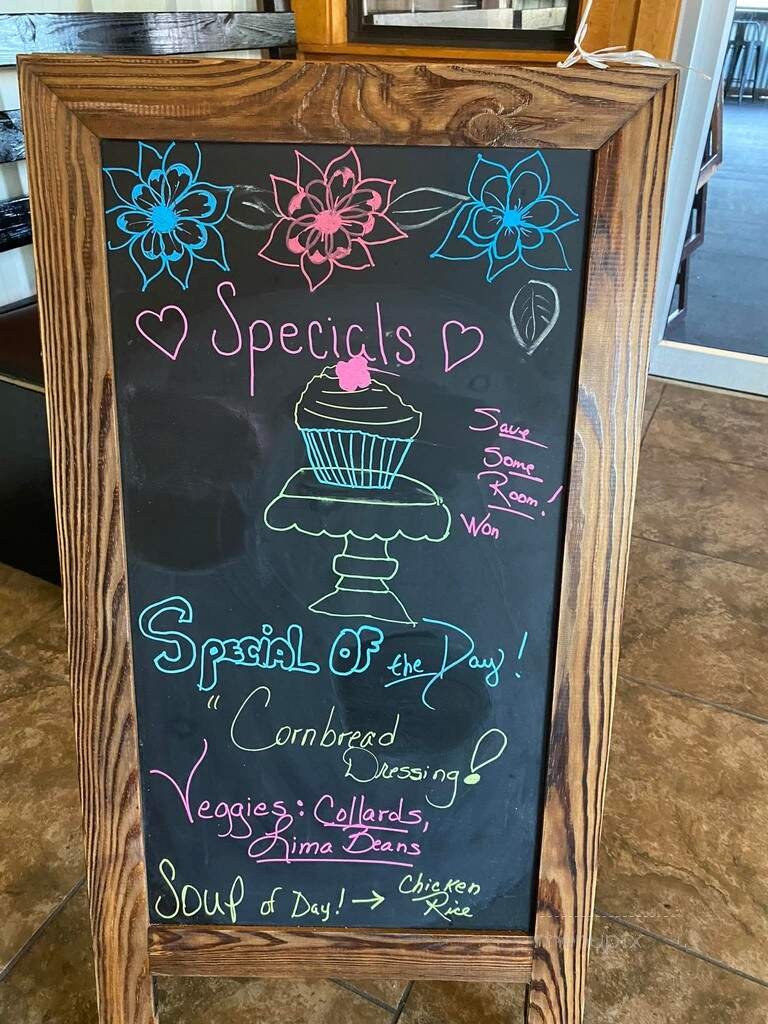 Specials
Save
Some
Room!
Won
Special Of the Day!
"Cornbread
Dressing!
Veggies: Collards,
Lima Beans
Soup of Day! → Chicken
Rice
menupix